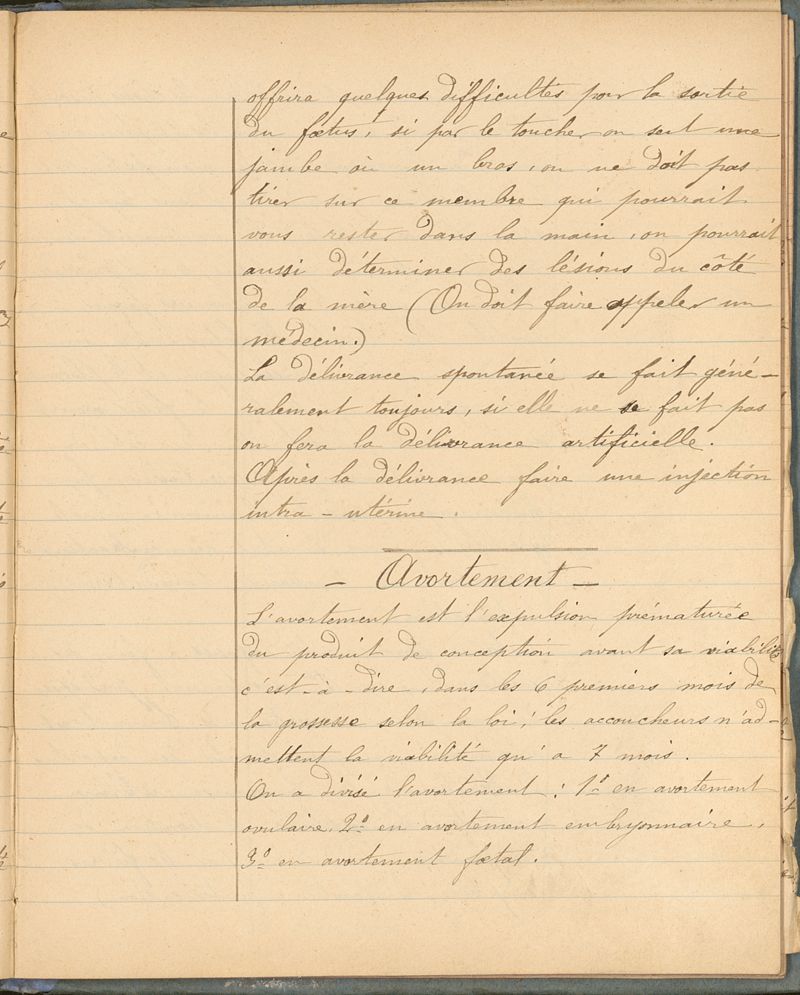 offrira quelques difficultés pour la sortie
du fœtus, si par le toucher on sent une
jambe où un bras, on ne doit pas
tirer sur ce membre qui pourrait
vous rester dans la main, on pourrait
aussi déterminer des lésions du côté
de la mère (On doit faire appeler un
médecin.)
La délivrance spontanée se fait géné-
ralement toujours, si elle ne se fait pas
on fera la délivrance artificielle.
Après la délivrance faire une injection
intra-utérine.
- Avortement -
L'avortement est l'expulsion prématurée
du produit de conception avant sa viabilité
c'est-à-dire, dans les 6 premiers mois de
la grossesse selon la loi; les accoucheurs n'ad-
mettent la viabilité qu'a 7 mois.
On a divisé l'avortement: 1º en avortement
ovulaire, 2º en avortement embryonnaire,
3º en avortement fœtal.